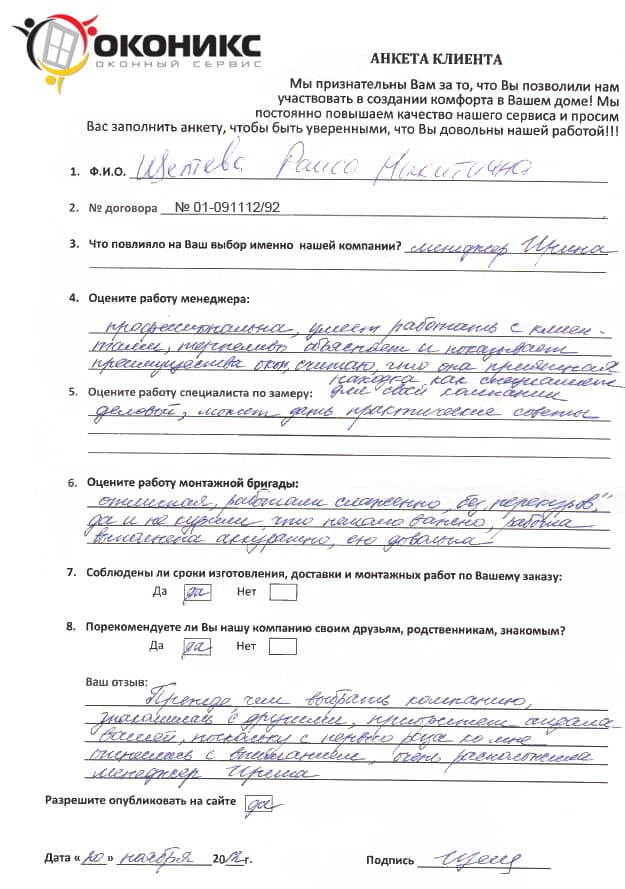 ОКОНИКС
ОКОННЫЙ СЕРВИС
АНКЕТА КЛИЕНТА
Мы признательны Вам за то, что Вы позволили нам
участвовать в создании комфорта в Вашем доме! Мы
постоянно повышаем качество нашего сервиса и просим
Вас заполнить анкету, чтобы быть уверенными, что Вы довольны нашей работой!!!
1. Ф.И.О. Раиса Никитична
2. № договора № 01-091112/92
3. Что повлияло на Ваш выбор именно нашей компании? менеджер Ирина
4. Оцените работу менеджера:
профессиональна, умеет работать с клиен-
тами, терпеливо объясняет и показывает
преимущества окон, считаю, что она
находка как специалист
5. Оцените работу специалиста по замеру: для своей компании
деловой, может дать практические советы
6. Оцените работу монтажной бригады:
отличная, работали слаженно, без "перекуров",
да и не курили, что немало важно, работа
выполнена аккуратно, ею довольна
7. Соблюдены ли сроки изготовления, доставки и монтажных работ по Вашему заказу:
Да да Нет
8. Порекомендуете ли Вы нашу компанию своим друзьям, родственникам, знакомым?
Да да Нет
Ваш отзыв:
Прежде, чем выбрать компанию,
знакомилась с другими, предпочтение отдала
Вашей, поскольку с первого раза ко мне
отнеслась с вниманием, очень расположена
менеджер Ирина
Разрешите опубликовать на сайте да
Дата «20» ноября 2012г. Подпись